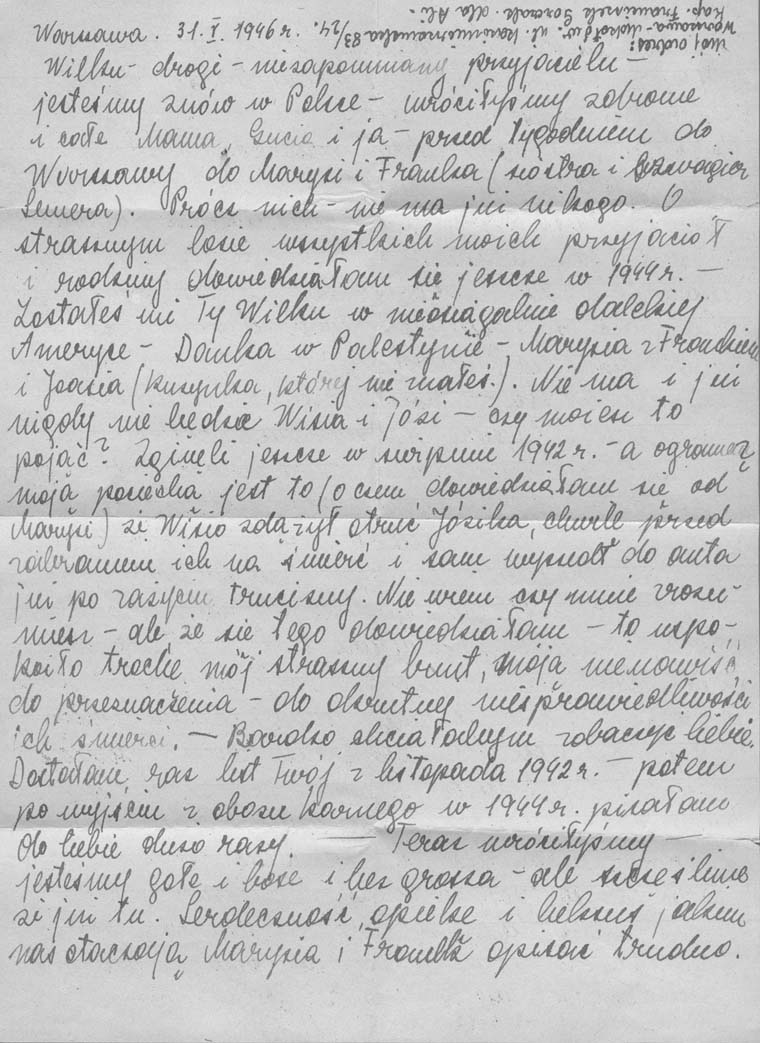 Warszawa. 31.V.1946 r.
Mój adres:
Warszawa-Mokotów. ul. Kazimierzowska 83/24.
Kap. Franciszek dla Ali.
Wilku drogi - niezapomniany przyjacielu -
jesteśmy znów w Polsce - wróciłyśmy zdrowe
i całe Mama, Gucia i ja - przed tygodniem do
Warszawy do Marysi i Franka (siostra i szwagier
Semera). Prócz nich - nie ma już nikogo. O
strasznym losie wszystkich moich przyjaciół
i rodziny dowiedziałam się jeszcze w 1944 r. -
Zostałeś mi Ty Wilku w nieosiągalnie dalekiej
Ameryce - Danka w Palestynie - Marysia z Frankiem
i Joasia (kuzynka, której nie znałeś.). Nie ma i już
nigdy nie będzie Wisia i Józi - czy możesz to
pojąć? Zginęli jeszcze w sierpniu 1942 r. - a ogromną
moją pociechą jest to (o czem dowiedziałam się od
Marysi) że Wisio zdążył otruć Józika, chwilę przed
zabraniem ich na śmierć i sam wyszedł do auta
już po zażyciu trucizny. Nie wiem czy mnie zrozu-
miesz - ale że się tego dowiedziałam - to uspo-
koiło trochę mój straszny bunt, moją nienawiść
do przeznaczenia - do okrutnej niesprawiedliwości
ich śmierci. - Bardzo chciałabym zobaczyć Ciebie.
Dostałam raz list Twój z listopada 1942 r. - potem
po wyjściu z obozu karnego w 1944 r. pisałam
do Ciebie dużo razy. - Teraz wróciłyśmy -
jesteśmy gołe i bose i bez grosza - ale szczęśliwe
że już tu. Serdeczność, opiekę i jakim
nas otaczają Marysia i Franek opisać trudno.